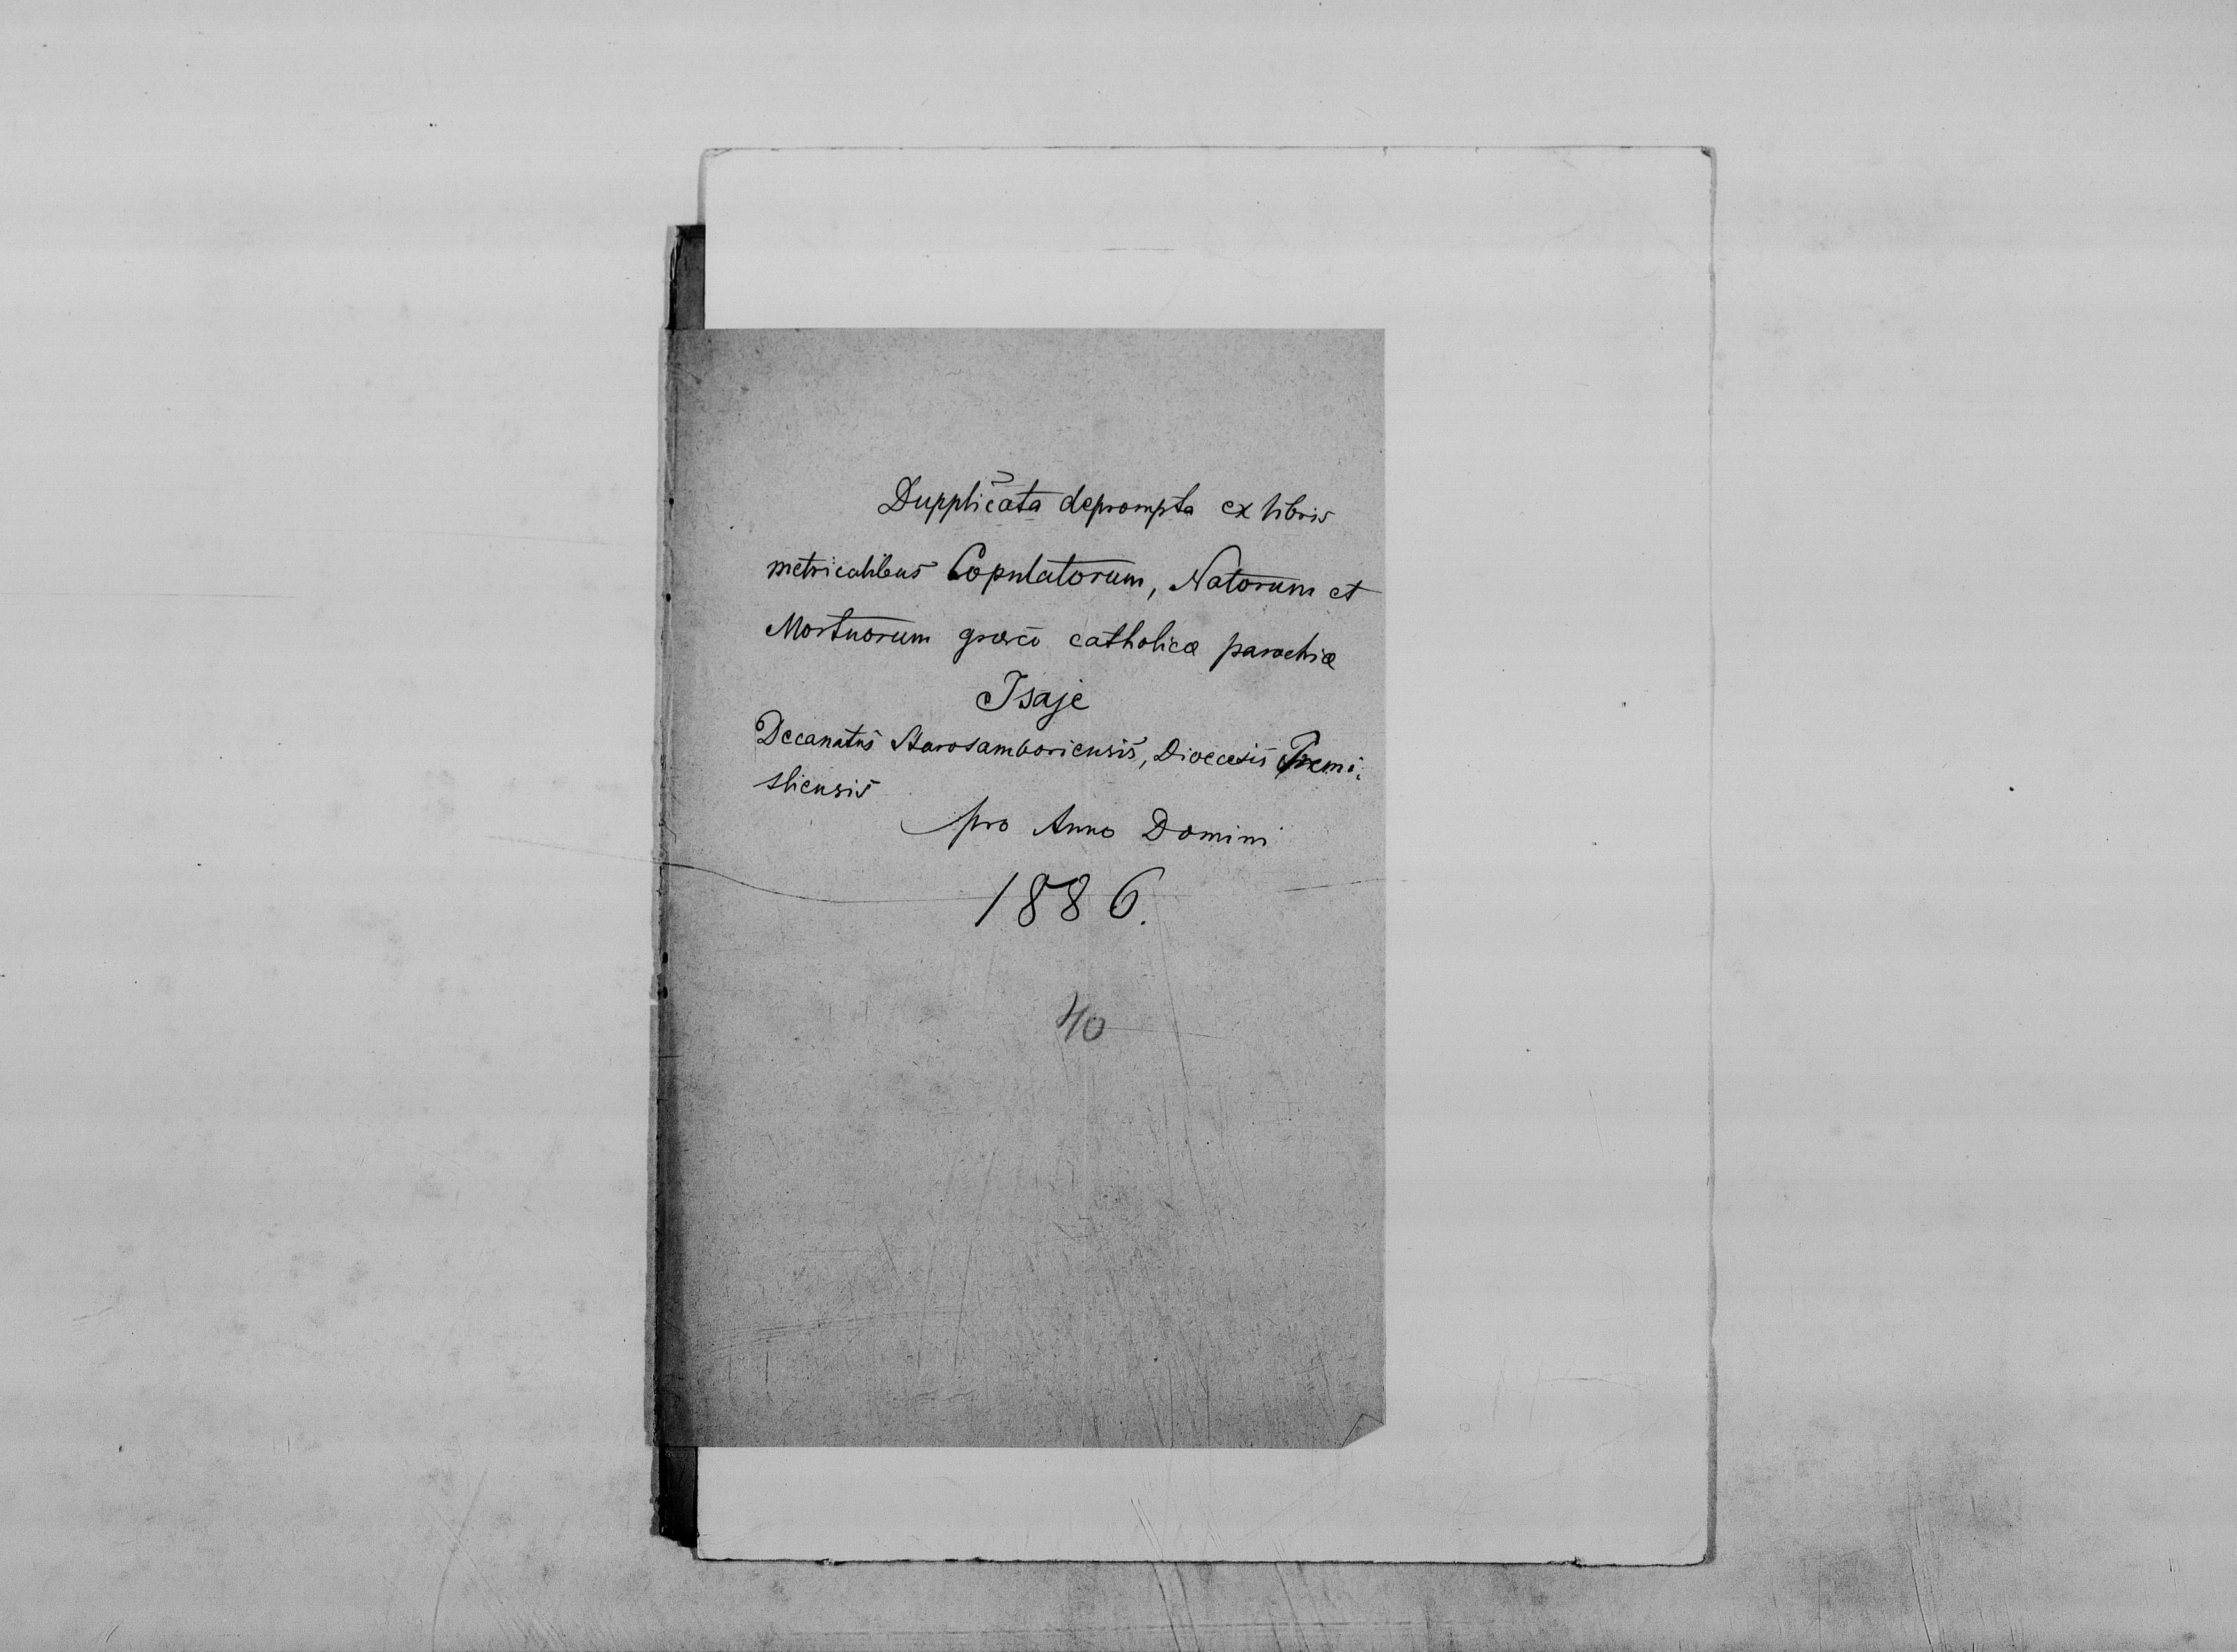 Dupplicata deprompta ex libris
metricalibus Copulatorum, Natorum et
Mortuorum græco catholicæ parochiæ
Isaje
Decanatus Starosamboriensis, Dioecesis Premi:
sliensis
pro Anno Domini
1886.
40